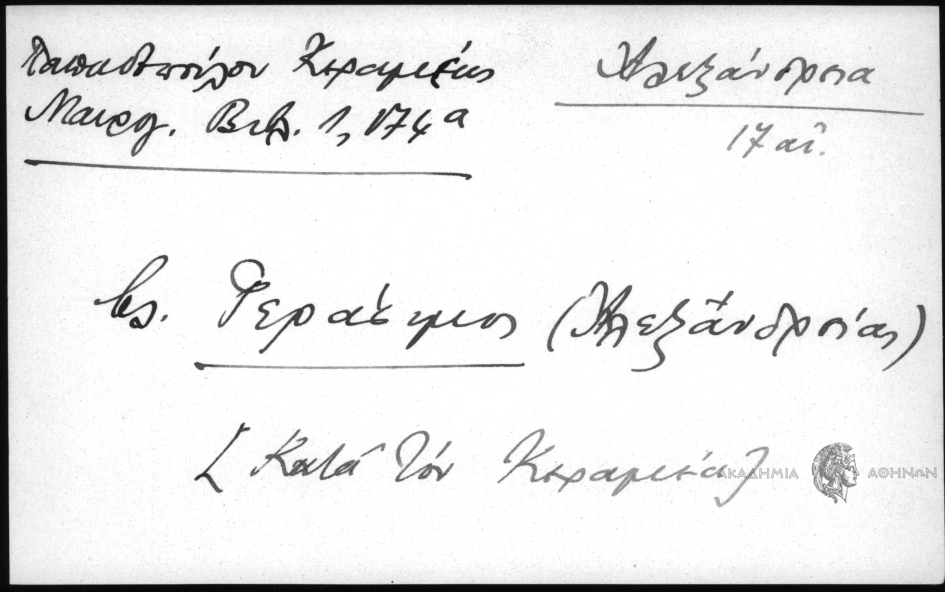 Παπαδοπούλου Κεραμέως
Μαυρογ. Βιβλ. 1, 174α
Αλεξάνδρεια
17 αι.
βλ. Γεράσιμος (Αλεξάνδρείας)
[Κατά τόν Κεραμέα]
ΑΚΑΔΗΜΙΑ ΑΘΗΝΩΝ